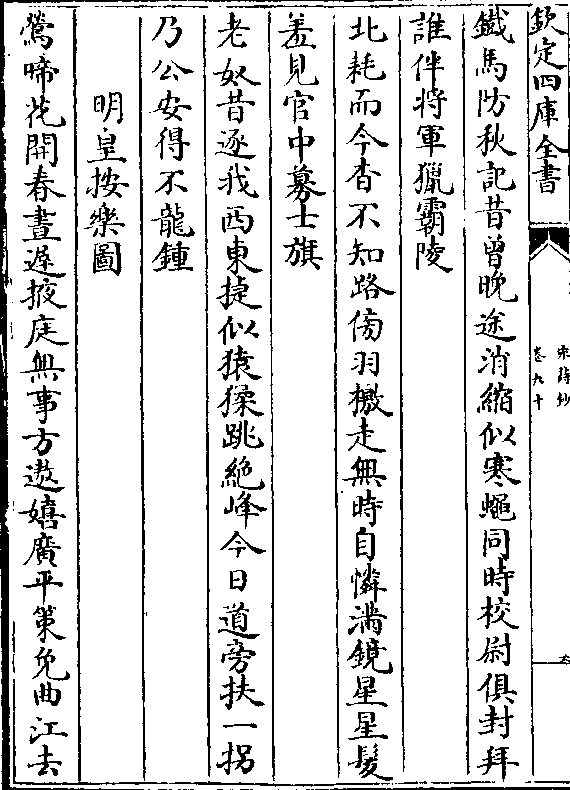 欽定四庫全書
宋詩鈔
卷九十
鐵馬防秋記昔曾晚途消縮似寒蠅同時校尉俱封拜
誰伴將軍獵霸陵
北耗而今杳不知路傍羽檄走無時自憐滿鏡星星髮
羞見官中募士旗
老奴昔逐我西東捷似猿猱跳絶峰今日道旁扶一拐
乃公安得不龍鍾
明皇按樂圖
鶯啼花開春晝遲掖庭無事方遨嬉廣平策免曲江去